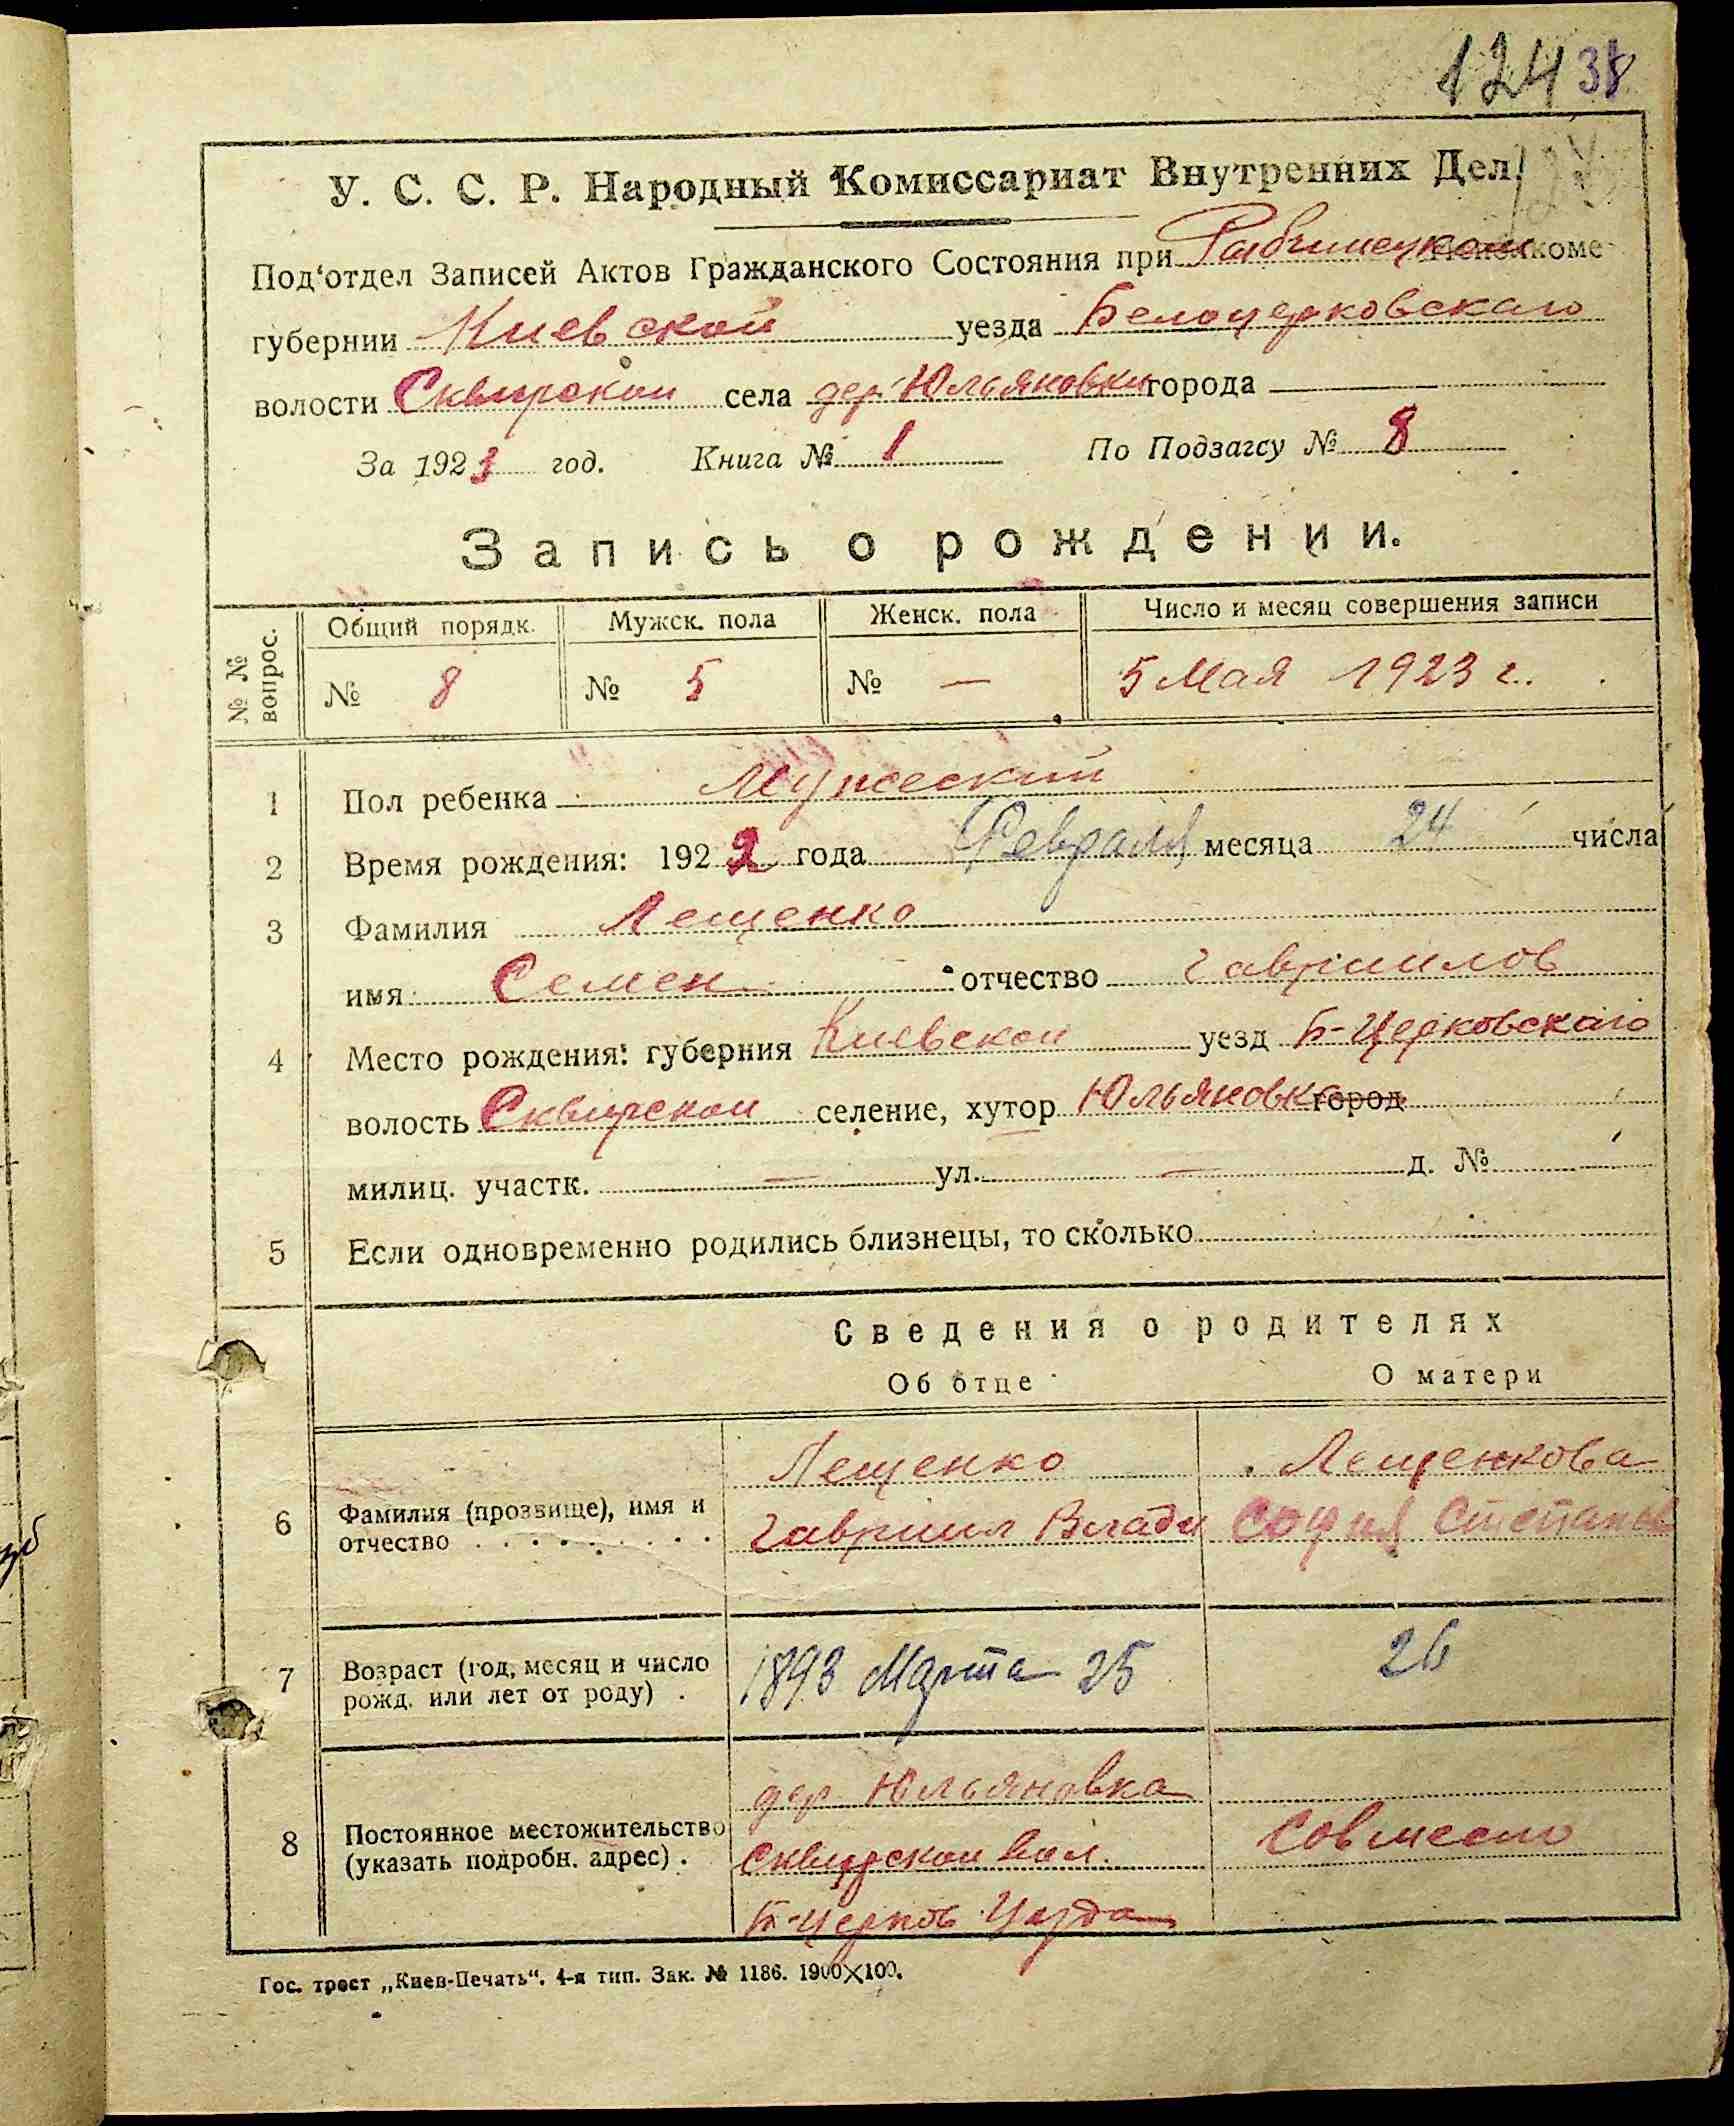 124 38
У. С. С. Р. Народный Комиссариат Внутренних Дел.
Под'отдел Записей Актов Гражданского Состояния при
губернии Киевской уезда Белоцерковскаго
волости Сквирской села дер. Юльяновки города
За 1923 год. Книга № 1 По Подзагсу № 8
Запись о рождении.
№ № вопрос. Общий порядк. Мужск. пола Женск. пола Число и месяц совершения записи
№ 8 № 5 № — 5 Мая 1923 г.
1 Пол ребенка Мужеский
2 Время рождения: 1922 года Февраля месяца 24 числа
3 Фамилия Лещенко
имя Семен отчество Гавриилов
4 Место рождения: губерния Киевской уезд Б-Церковскаго
волость Сквирской селение, хутор Юльяновка город
милиц. участк. — ул. — д. №
5 Если одновременно родились близнецы, то сколько
Сведения о родителях
Об отце О матери
Лещенко Лещенкова
6 Фамилия (прозвище), имя и
отчество Гавриил Влади София Степанов
7 Возраст (год, месяц и число
рожд. или лет от роду) 1893 Марта 25 26
дер. Юльяновка
8 Постоянное местожительство
(указать подробн. адрес) Сквирской вол. Совместно
Б-Церков. Уезда
Гос. трест „Киев-Печать“. 4-я тип. Зак. № 1186. 1900×100.